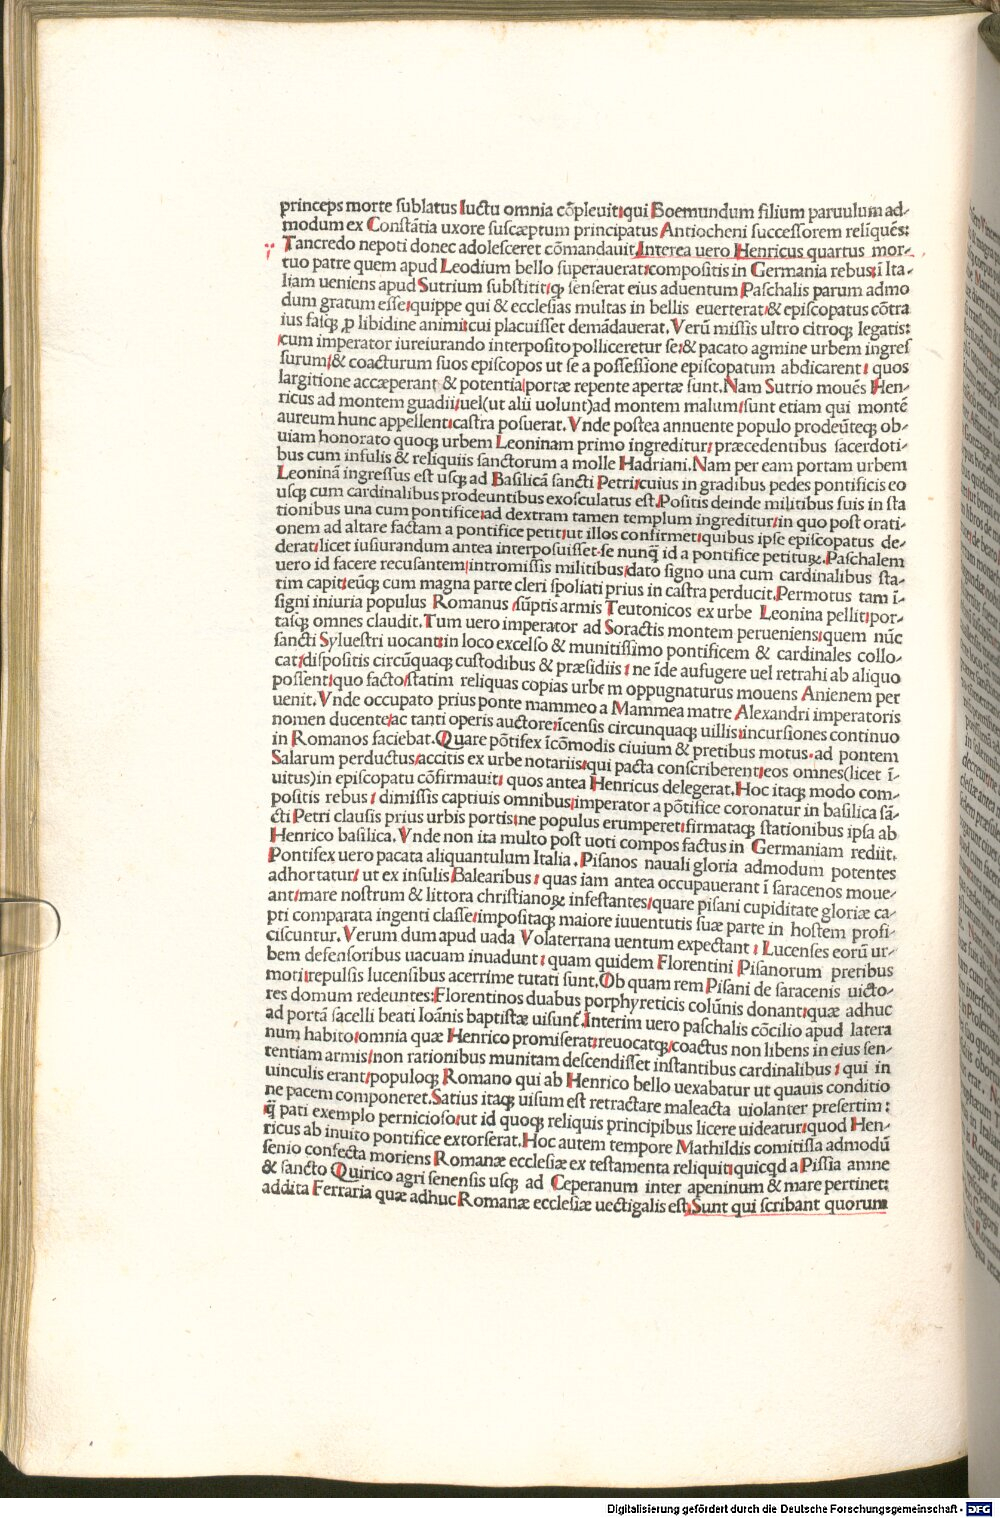 princeps morte ſublatus luctu omnia cõpleuit: qui Boemundum filium paruulum ad-
modum ex Conſtãtia uxore ſuſcæptum principatus Antiocheni ſucceſſorem reliquẽs:
Tancredo nepoti donec adoleſceret cõmandauit. Interea uero Henricus quartus mor-
tuo patre quem apud Leodium bello ſuperauerat: compoſitis in Germania rebus: ĩ Ita-
liam ueniens apud Sutrium ſubſtitit: qꝫ ſenſerat eius aduentum Paſchalis parum admo
dum gratum eſſe: quippe qui & eccleſias multas in bellis euerterat: & epiſcopatus cõtra
ius faſqꝫ ꝓ libidine animi: cui placuiſſet demãdauerat. Verũ miſſis ultro citroqꝫ legatis:
cum imperator iureiurando interpoſito polliceretur ſe: & pacato agmine urbem ingreſ
ſurum: & coacturum ſuos epiſcopos ut ſe a poſſeſſione epiſcopatum abdicarent: quos
largitione accæperant & potentia: portæ repente apertæ ſunt. Nam Sutrio mouẽs Hen-
ricus ad montem guadii: uel (ut alii uolunt) ad montem malum: ſunt etiam qui montẽ
aureum hunc appellent: caſtra poſuerat. Vnde poſtea annuente populo prodeũteqꝫ ob-
uiam honorato quoqꝫ urbem Leoninam primo ingreditur: præcedentibus ſacerdoti-
bus cum inſulis & reliquiis ſanctorum a molle Hadriani. Nam per eam portam urbem
Leoninã ingreſſus eſt uſqꝫ ad Baſilicã ſancti Petri: cuius in gradibus pedes pontificis eo
uſqꝫ cum cardinalibus prodeuntibus exoſculatus eſt. Poſitis deinde militibus ſuis in ſta
tionibus una cum pontifice: ad dextram tamen templum ingreditur: in quo poſt orati-
onem ad altare factam a pontifice petit: ut illos confirmet: quibus ipſe epiſcopatus de-
derat: licet iuſiurandum antea interpoſuiſſet: ſe nunq̃ id a pontifice petituꝝ. Paſchalem
uero id facere recuſantem: intromiſſis militibus: dato ſigno una cum cardinalibus ſta-
tim capit: eũqꝫ cum magna parte cleri ſpoliati prius in caſtra perducit. Permotus tam ĩ-
ſigni iniuria populus Romanus ſũptis armis Teutonicos ex urbe Leonina pellit: por-
taſqꝫ omnes claudit. Tum uero imperator ad Soractis montem perueniens: quem nũc
ſancti Sylueſtri uocant: in loco excelſo & munitiſſimo pontificem & cardinales collo-
cat: diſpoſitis circũquaqꝫ cuſtodibus & præſidiis: ne ĩde aufugere uel retrahi ab aliquo
poſſent: quo facto: ſtatim reliquas copias urbem oppugnaturus mouens Anienem per
uenit. Vnde occupato prius ponte mammeo a Mammea matre Alexandri imperatoris
nomen ducente: ac tanti operis auctore: ĩcenſis circunquaqꝫ uillis: incurſiones continuo
in Romanos faciebat. Quare põtifex ĩcõmodis ciuium & pretibus motus: ad pontem
Salarum perductus: accitis ex urbe notariis: qui pacta conſcriberent: eos omnes (licet ĩ-
uitus) in epiſcopatu cõfirmauit: quos antea Henricus delegerat. Hoc itaqꝫ modo com-
poſitis rebus: dimiſſis captiuis omnibus: imperator a põtifice coronatur in baſilica ſã-
cti Petri clauſis prius urbis portis: ne populus erumperet: firmataqꝫ ſtationibus ipſa ab
Henrico baſilica. Vnde non ita multo poſt uoti compos factus in Germaniam rediit.
Pontifex uero pacata aliquantulum Italia. Piſanos nauali gloria admodum potentes
adhortatur: ut ex inſulis Balearibus: quas iam antea occupauerant ĩ ſaracenos moue-
ant: mare noſtrum & littora chriſtianoꝝ infeſtantes: quare piſani cupiditate gloriæ ca-
pti comparata ingenti claſſe: impoſitaqꝫ maiore iuuentutis ſuæ parte in hoſtem profi-
ciſcuntur. Verum dum apud uada Volaterrana uentum expectant: Lucenſes eorũ ur-
bem defenſoribus uacuam inuadunt: quam quidem Florentini Piſanorum pretibus
moti: repulſis lucenſibus acerrime tutati ſunt. Ob quam rem Piſani de ſaracenis uicto-
res domum redeuntes: Florentinos duabus porphyreticis colũnis donant: quæ adhuc
ad portã ſacelli beati Ioãnis baptiſtæ uiſunt̃. Interim uero paſchalis cõcilio apud latera
num habito: omnia quæ Henrico promiſerat: reuocatqꝫ: coactus non libens in eius ſen-
tentiam armis: non rationibus munitam deſcendiſſet inſtantibus cardinalibus: qui in
uinculis erant: populoqꝫ Romano qui ab Henrico bello uexabatur ut quauis conditio
ne pacem componeret. Satius itaqꝫ uiſum eſt retractare maleacta uiolanter preſertim:
q̃ pati exemplo pernicioſo: ut id quoqꝫ reliquis principibus licere uideatur: quod Hen-
ricus ab inuito pontifice extorſerat. Hoc autem tempore Mathildis comitiſſa admodũ
ſenio confecta moriens Romanæ eccleſiæ ex teſtamenta reliquit: quicqd a Piſſia amne
& ſancto Quirico agri ſenenſis uſqꝫ ad Ceperanum inter apeninum & mare pertinet:
addita Ferraria quæ adhuc Romanæ eccleſiæ uectigalis eſt. Sunt qui ſcribant quorum
Digitalisierung gefördert durch die Deutsche Forschungsgemeinschaft - DFG